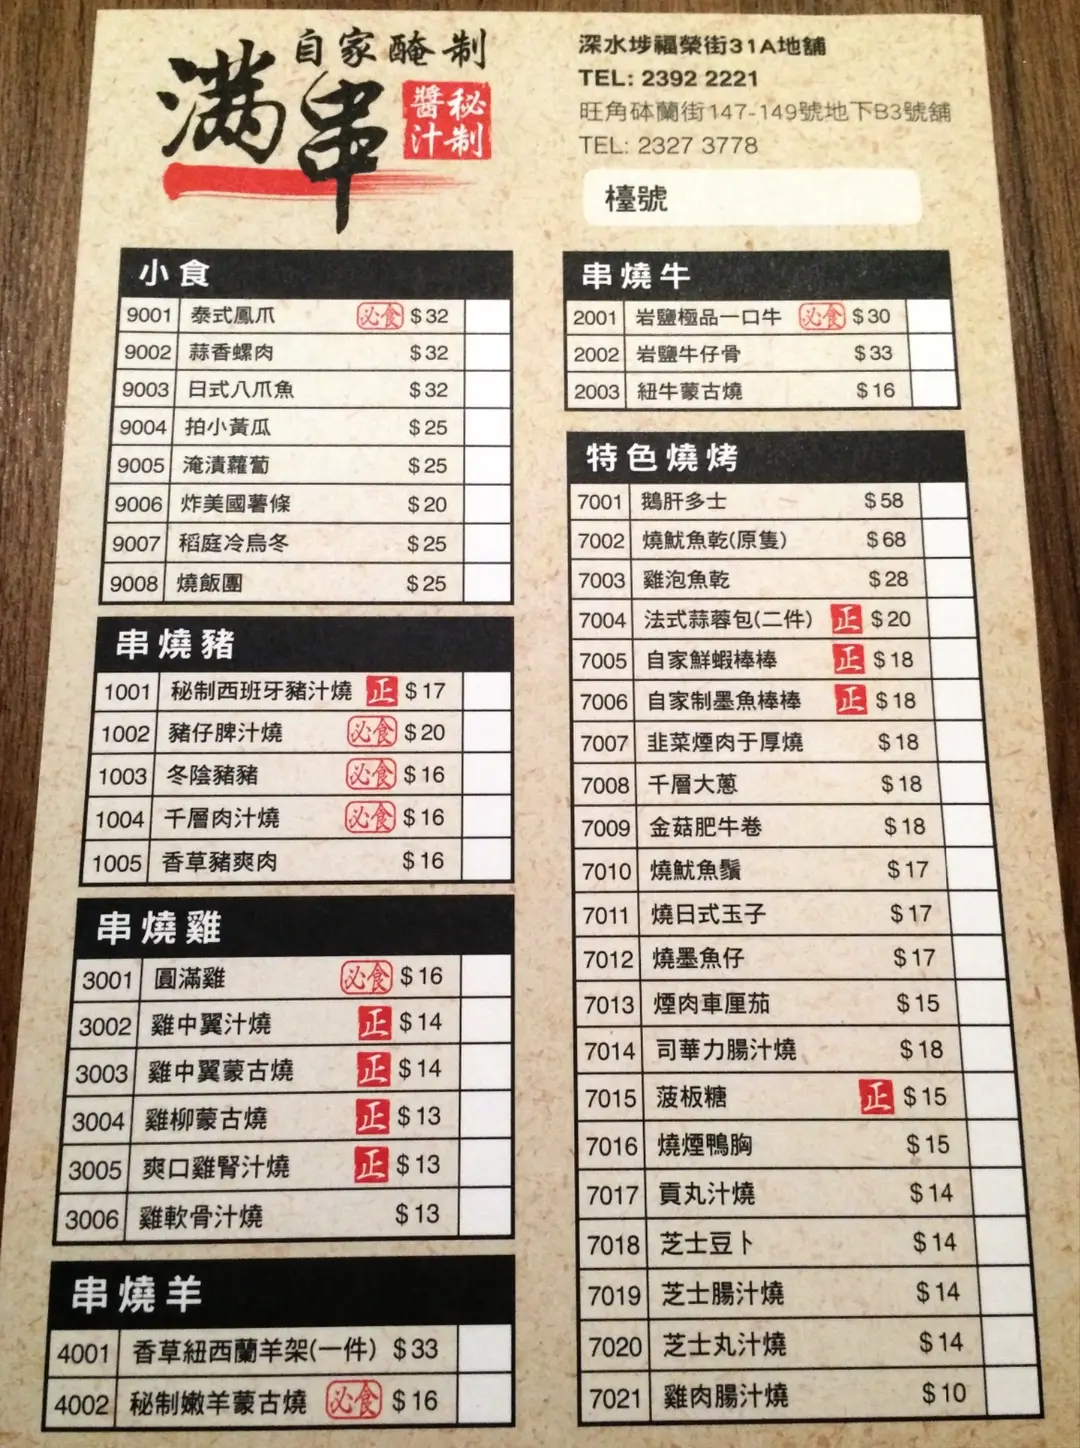 自家醃制
滿串
秘制醬汁
深水埗福榮街31A地舖
TEL: 2392 2221
旺角砵蘭街147-149號地下B3號舖
TEL: 2327 3778
檯號
小食
9001 泰式鳳爪 必食 $32
9002 蒜香螺肉 $32
9003 日式八爪魚 $32
9004 拍小黃瓜 $25
9005 淹漬蘿蔔 $25
9006 炸美國薯條 $20
9007 稻庭冷烏冬 $25
9008 燒飯團 $25
串燒豬
1001 秘制西班牙豬汁燒 正 $17
1002 豬仔脾汁燒 必食 $20
1003 冬陰豬豬 必食 $16
1004 千層肉汁燒 必食 $16
1005 香草豬爽肉 $16
串燒雞
3001 圓滿雞 必食 $16
3002 雞中翼汁燒 正 $14
3003 雞中翼蒙古燒 正 $14
3004 雞柳蒙古燒 正 $13
3005 爽口雞腎汁燒 正 $13
3006 雞軟骨汁燒 $13
串燒羊
4001 香草紐西蘭羊架(一件) $33
4002 秘制嫩羊蒙古燒 必食 $16
串燒牛
2001 岩鹽極品一口牛 必食 $30
2002 岩鹽牛仔骨 $33
2003 紐牛蒙古燒 $16
特色燒烤
7001 鵝肝多士 $58
7002 燒魷魚乾(原隻) $68
7003 雞泡魚乾 $28
7004 法式蒜蓉包(二件) 正 $20
7005 自家鮮蝦棒棒 正 $18
7006 自家制墨魚棒棒 正 $18
7007 韭菜煙肉于厚燒 $18
7008 千層大蔥 $18
7009 金菇肥牛卷 $18
7010 燒魷魚鬚 $17
7011 燒日式玉子 $17
7012 燒墨魚仔 $17
7013 煙肉車厘茄 $15
7014 司華力腸汁燒 $18
7015 菠板糖 正 $15
7016 燒煙鴨胸 $15
7017 貢丸汁燒 $14
7018 芝士豆卜 $14
7019 芝士腸汁燒 $14
7020 芝士丸汁燒 $14
7021 雞肉腸汁燒 $10